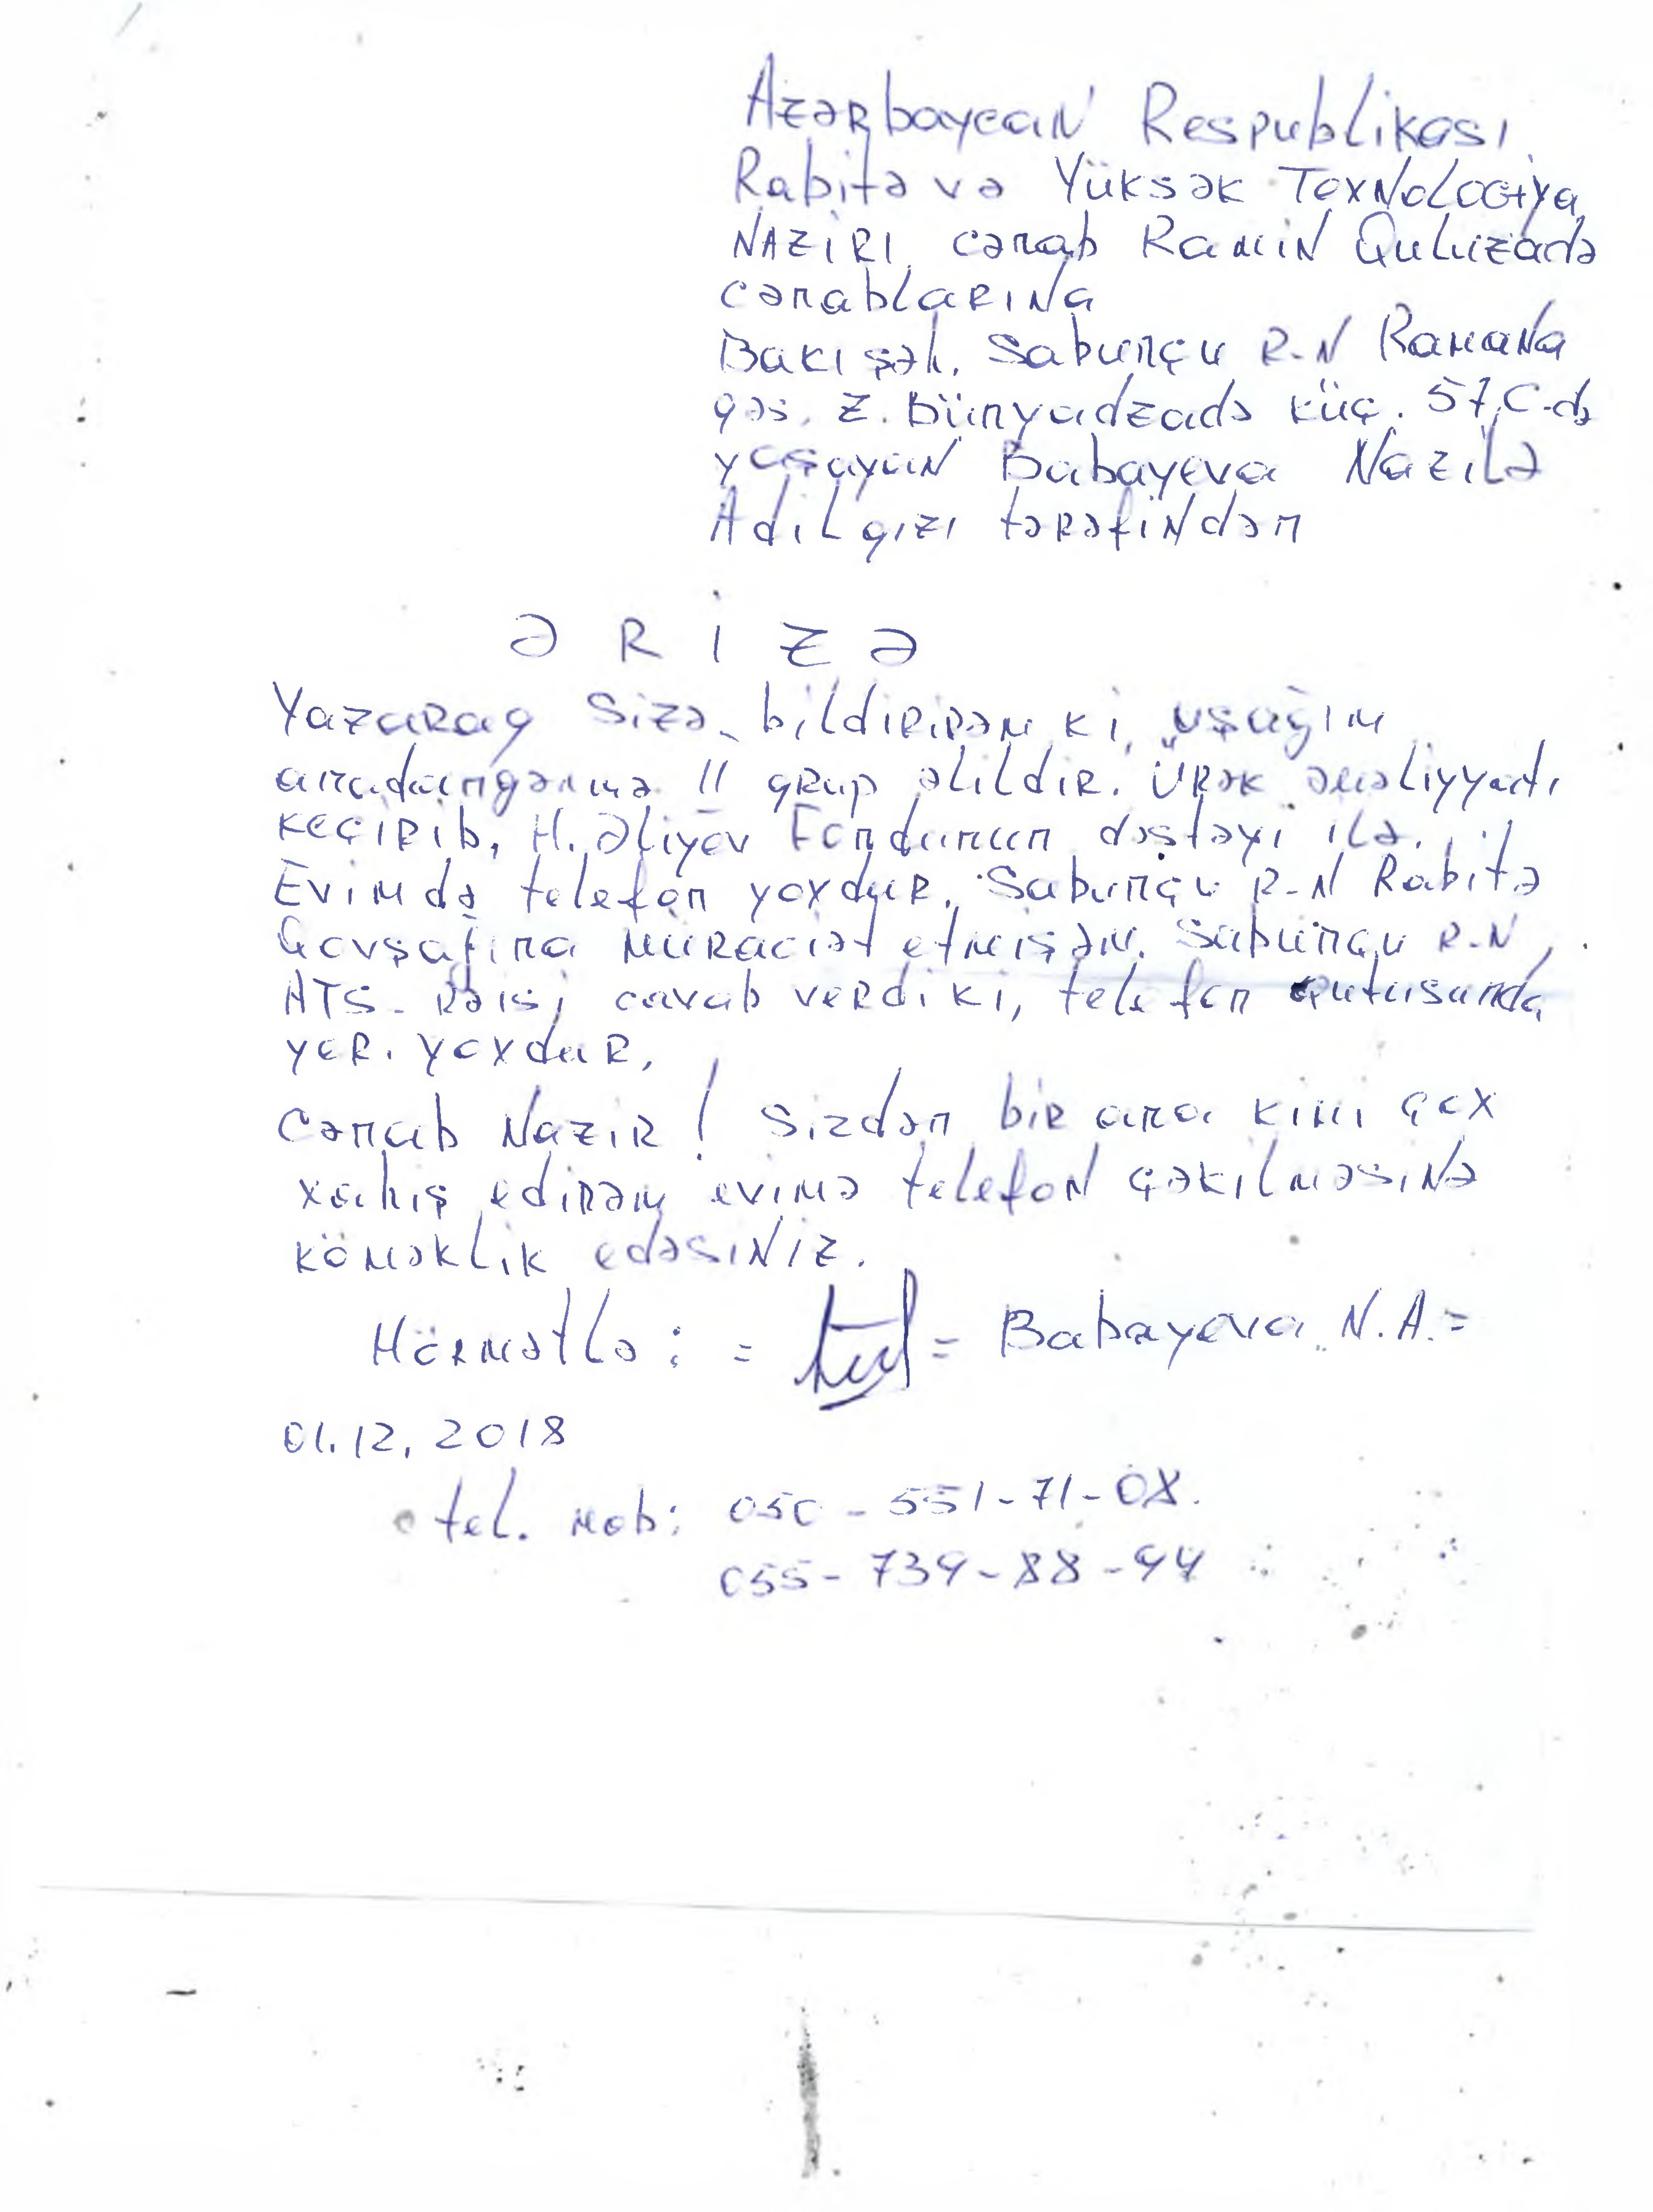 Azərbaycan Respublikası
Rabitə və Yüksək Texnologiya
Naziri cənab Ramin Quluzadə
cənablarına
Bakı şəh. Sabunçu r-n Ramana
qəs. Z. Bünyadzadə küç. 57,C-də
yaşayan Babayeva Nazilə
Adil qızı tərəfindən
ƏRİZƏ
Yazaraq Sizə bildirirəm ki, uşağım
anadangəlmə II qrup əlildir. Ürək əməliyyatı
keçirib, H. Əliyev Fondunun dəstəyi ilə.
Evimdə telefon yoxdur. Sabunçu r-n Rabitə
Govşağına müraciət etmişəm. Sabunçu r-n
ATS-rəisi cavab verdi ki, telefon qutusunda
yer yoxdur,
Cənab Nazir! Sizdən bir ana kimi çox
xahiş edirəm evimə telefon çəkilməsinə
köməklik edəsiniz.
Hörmətlə: = = Babayeva N.A. =
01.12.2018
tel. mob: 050-551-71-08.
055-739-88-94